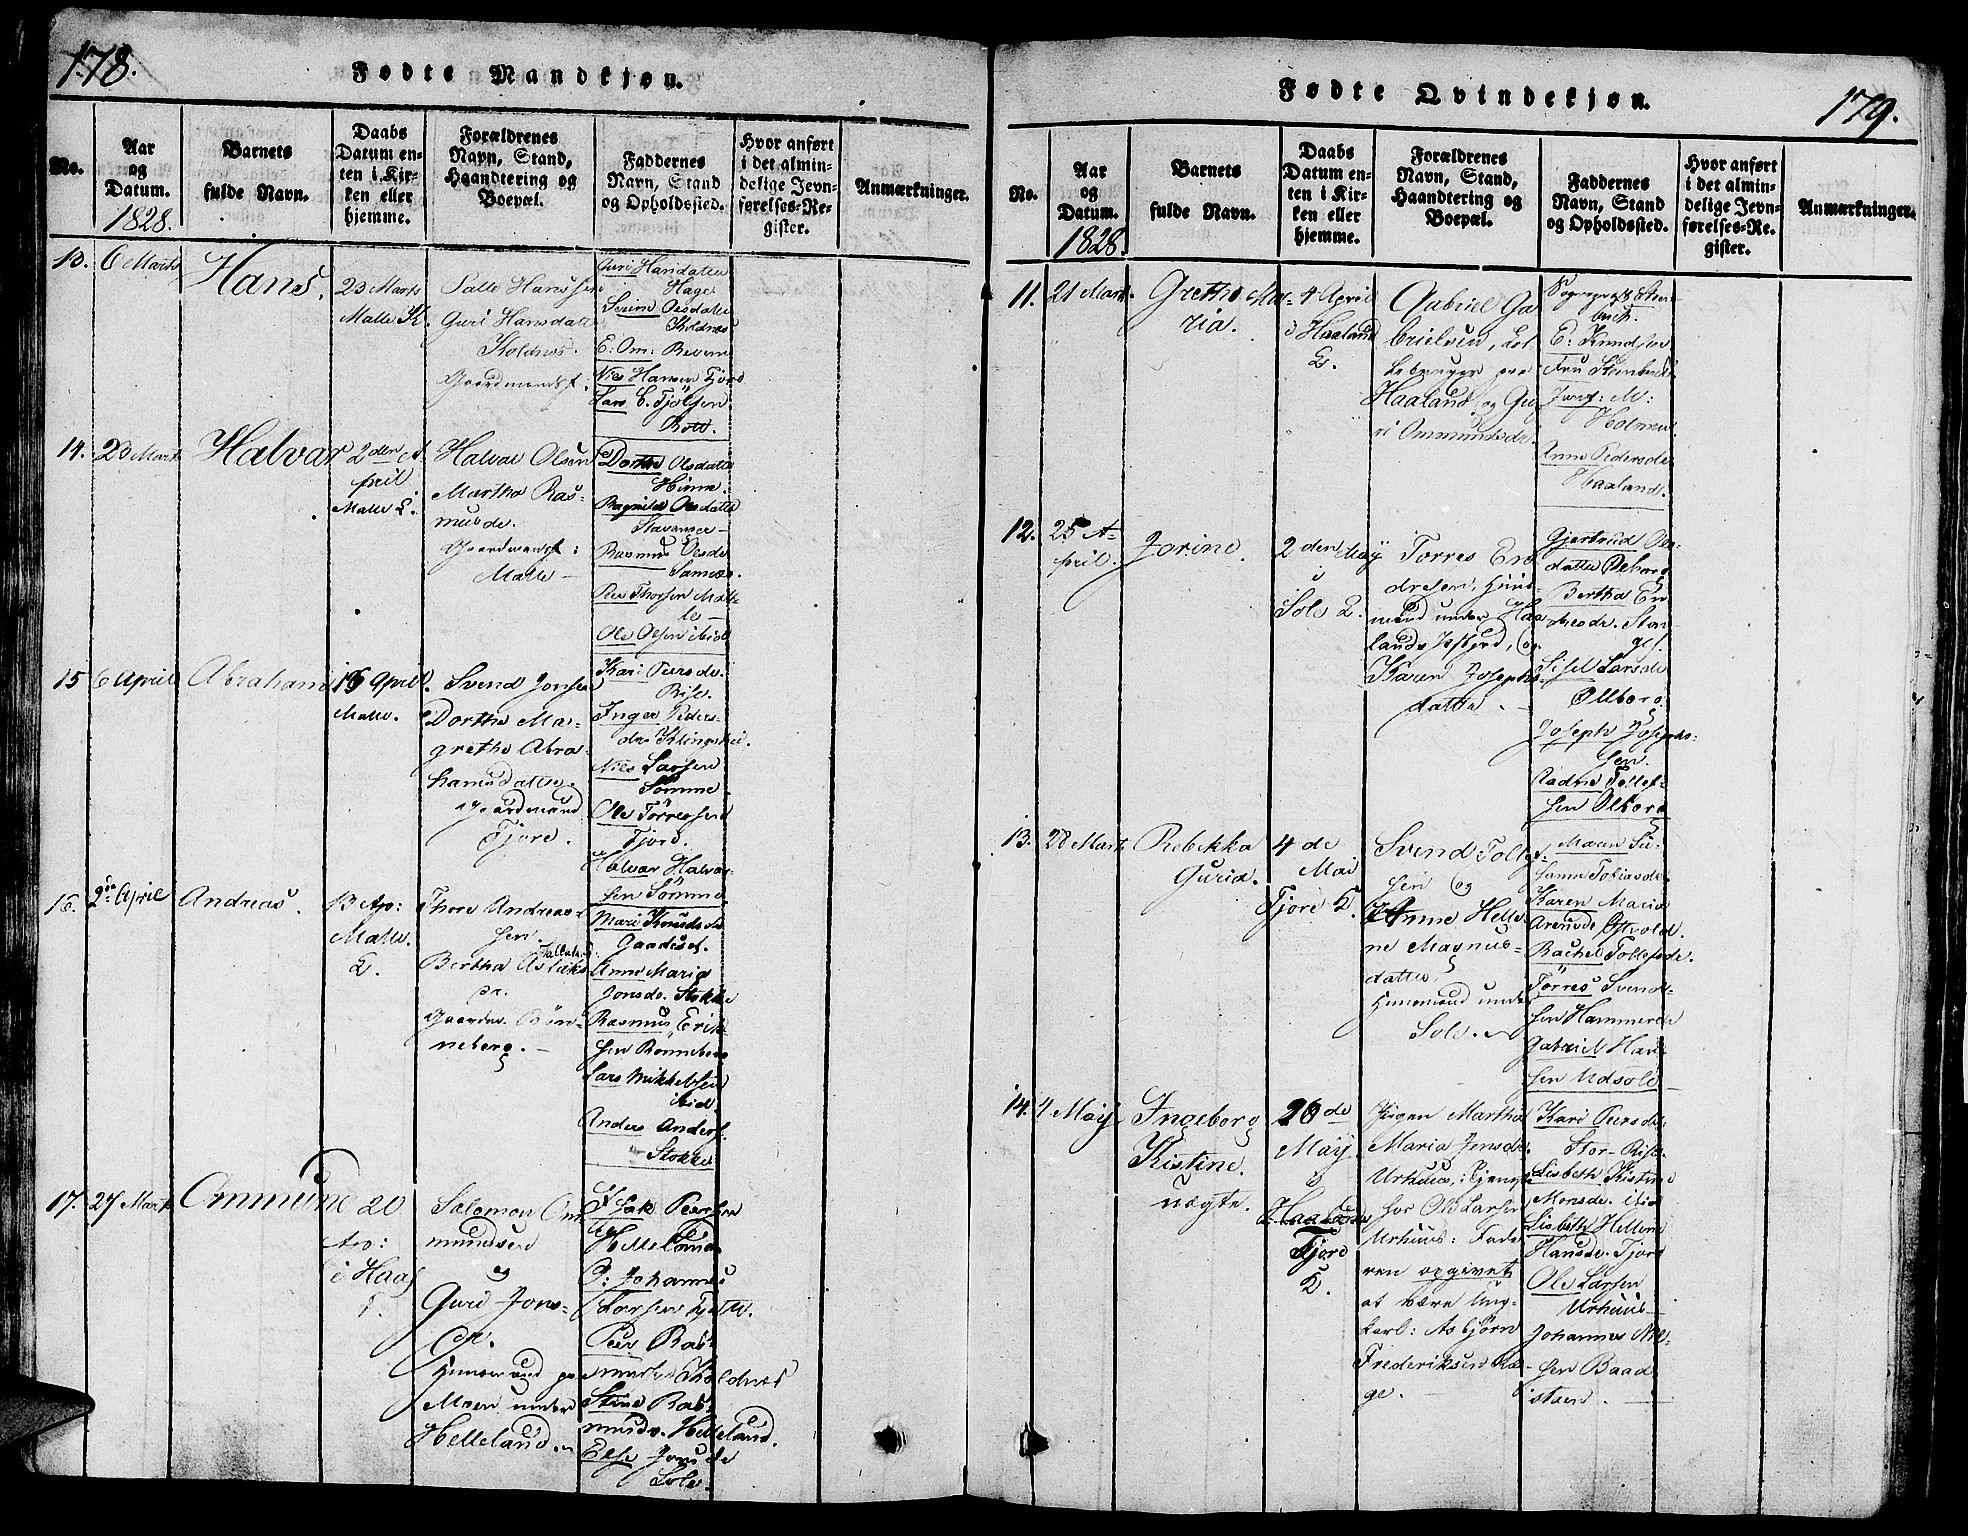 178.
Fødte Mandkjøn.
No.
Aar
og
Datum.
1828.
Barnets
fulde Navn.
Daabs
Datum en-
ten i Kir-
ken eller
hjemme.
Forældrenes
Navn, Stand,
Haandtering og
Boepæl.
Faddernes
Navn, Stand
og Opholdssted.
Hvor anført
i det almin-
delige Jevn-
førelses-Re-
gister.
Anmærkninger.
6 Marts
Hans.
23 Marts
Malle K.
Salle Hanssen
Guri Hansdatter
Koldnes.
Gaardmandsf.
Guri Hansdatter
Hage
Serine Olsdatter
Koldnes
E: Om: Revem
Niels Hansen Tjora
Lars E. Tjölsen
Rott.
14.
23 Marts
Halvar
2den A-
pril
Malle K.
Halvar Olsen
Martha Ras-
musdr.
Gaardmandsf:
Malle
Dorthe Olsdatter
Hinna.
Ragnild Olsdatter
Stavanger
Rasmus Olsen
Sannæs.
Peer Thorsen Mal-
le
Ole Olsen ibid
15
6 April
Abraham
16 April.
Malle.
Svend Jonsen
Dorthe Ma-
grethe Abra-
hamsdatter.
Gaardmand
Tjore.
Kari Peersdr.
Risa.
Inger Peders-
dr. Klingshei.
Niels Larsen
Sömme
Ole Törresen
Tjora.
Halvar Halvar-
sen Sömme
16.
April
Andreas.
13 Apr:
Malle.
K.
Thore Andreas-
sen
Bertha Aslaks-
dr.
Gaardm. Rön-
neberg.
Mari Knudsdr
Gaadeset.
Anne Maria
Jonsdr. Stokke
Rasmus Erik-
sen Ronneberg
Lars Mikkelsen
ibid.
Anders Anders.
Stokke
17.
27 Marts
Ommund
20
Apr:
i Haa
Salomon Om-
mundsen
og
Guri Jons-
dr.
Huusmand paa
Moen under
Helleland.
Isak Peersen
Helleland
P: Johannes
Larsen Tjelta.
Peer Ras-
mussen Koldnes
Stine Ras-
musdr. Helleland.
Else Jonsdr
Sole.
179.
Fødte Qvindekjøn.
No.
Aar
og
Datum.
1828.
Barnets
fulde Navn.
Daabs
Datum en-
ten i Kir-
ken eller
hjemme.
Forældrenes
Navn, Stand,
Haandtering og
Boepæl.
Faddernes
Navn, Stand
og Opholdssted.
Hvor anført
i det almin-
delige Jevn-
førelses-Re-
gister.
Anmærkninger.
11.
21 Marts.
Grethe Ma-
ria.
4 April
i Haaland
K.
Gabriel Ga-
brielsen, Lol-
lebruger paa
Haaland, og Gu-
ri Ommundsdr.
Sogneprest Sten-
buch.
E: Knudsen
Fru Stenbuch
Jomf: M:
Holmen
Anne Pedersdr
Haaland.
12.
25 A-
pril.
Jorine.
2den May
i
Sole K.
Torres En-
dresen, Huus-
mand under Haa-
lands Præstegjeld, og
Karen Josephs-
datter.
Gjertrud Ols-
datter Olborg
Bertha En-
dresdr. Stan-
ge.
Sisel Larsdr
Olborg
Joseph Josephs-
sen.
Tollef-
sen Olborg
13.
28 Marts
Rebekka
Guria.
4de
Mai
Tjore K.
Svend Tollef-
sen og
Anne Helle-
ne Magnus-
datter
Huusmand under
Sole.
Maren Su-
sanne Tobiasdr.
Karen Maria
Arensdr.
Rachel Tollefsdr.
Törres Svend-
sen Hammeren
Gabriel Han-
sen Udsole
14.
4 May
Ingeborg
Kistine.
uægte.
26de
May
i
Haaland
Tjore
K.
Pigen Martha
Maria Jonsdr.
Urhuus, i Tjeneste
hos Ole Larsen
Urhuus: Fade-
ren opgivet
at være Ung-
karl: Asbjörn
Frederiksen Ræ-
ge.
Kari Peersdr
Stor-Risa
Lisbeth Kistine
Monsdr. ibid
Lisbeth Hellene
Hansdr. Tjora
Ole Larsen
Urhuus
Johannes Niel-
sen Baad-
istaen.